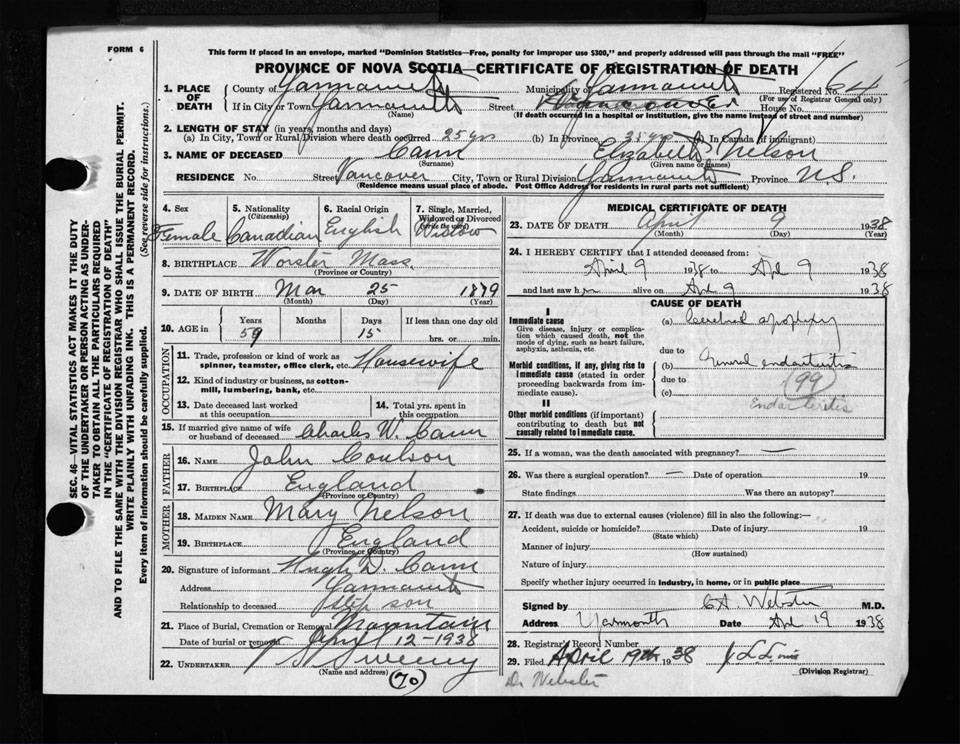 FORM 6
This form if placed in an envelope, marked "Dominion Statistics—Free, penalty for improper use $300," and properly addressed will pass through the mail "FREE"
PROVINCE OF NOVA SCOTIA—CERTIFICATE OF REGISTRATION OF DEATH
164
1. PLACE OF DEATH
County of Yarmouth Municipality of Yarmouth Registered No.
(For use of Registrar General only)
If in City or Town Yarmouth Street Vancouver House No.
(Name) (If death occurred in a hospital or institution, give the name instead of street and number)
2. LENGTH OF STAY (in years, months and days)
(a) In City, Town or Rural Division where death occurred 25 yrs (b) In Province 35 yrs (c) In Canada (if immigrant)
3. NAME OF DECEASED Cann Elizabeth Nelson
(Surname) (Given name or names)
RESIDENCE No. Street Vancover City, Town or Rural Division Yarmouth Province N.S.
(Residence means usual place of abode. Post Office Address for residents in rural parts not sufficient)
4. Sex Female
5. Nationality (Citizenship) Canadian
6. Racial Origin English
7. Single, Married, Widowed or Divorced (write the word) Widow
8. BIRTHPLACE Worster Mass.
(Province or Country)
9. DATE OF BIRTH Mar 25 1879
(Month) (Day) (Year)
10. AGE in Years 59 Months Days 15 If less than one day old hrs. or min.
OCCUPATION
11. Trade, profession or kind of work as spinner, teamster, office clerk, etc. Housewife
12. Kind of industry or business, as cotton-mill, lumbering, bank, etc.
13. Date deceased last worked at this occupation
14. Total yrs. spent in this occupation
15. If married give name of wife or husband of deceased Charles W. Cann
FATHER
16. NAME John Coulson
17. BIRTHPLACE England
(Province or Country)
MOTHER
18. MAIDEN NAME Mary Nelson
19. BIRTHPLACE England
(Province or Country)
20. Signature of informant Hugh D. Cann
Address Yarmouth
Relationship to deceased step son
21. Place of Burial, Cremation or Removal Mountain
Date of burial or removal April 12-1938
22. UNDERTAKER Sweeny
(Name and address)
70
MEDICAL CERTIFICATE OF DEATH
23. DATE OF DEATH April 9 1938
(Month) (Day) (Year)
24. I HEREBY CERTIFY that I attended deceased from:
April 9 1938 to Apl 9 1938
and last saw her alive on Apl 9 1938
CAUSE OF DEATH
I
Immediate cause
Give disease, injury or complication which caused death, not the mode of dying, such as heart failure, asphyxia, asthenia, etc.
(a) Cerebral apoplexy
due to
Morbid conditions, if any, giving rise to immediate cause (stated in order proceeding backwards from immediate cause).
(b) General endarteritis
due to
(c)
(99)
Endarteritis
II
Other morbid conditions (if important) contributing to death but not causally related to immediate cause.
25. If a woman, was the death associated with pregnancy? —
26. Was there a surgical operation? — Date of operation 19
State findings Was there an autopsy?
27. If death was due to external causes (violence) fill in also the following:—
Accident, suicide or homicide? Date of injury 19
(State which)
Manner of injury
(How sustained)
Nature of injury
Specify whether injury occurred in industry, in home, or in public place
Signed by C.A. Webster M.D.
Address Yarmouth Date Apl 19 1938
28. Registrar's Record Number
29. Filed April 19th 1938
(Division Registrar)
Dr Webster
SEC. 46—VITAL STATISTICS ACT MAKES IT THE DUTY
OF THE UNDERTAKER OR PERSON ACTING AS UNDER-
TAKER TO OBTAIN ALL THE PARTICULARS REQUIRED
IN THE "CERTIFICATE OF REGISTRATION OF DEATH"
AND TO FILE THE SAME WITH THE DIVISION REGISTRAR WHO SHALL ISSUE THE BURIAL PERMIT.
WRITE PLAINLY WITH UNFADING INK. THIS IS A PERMANENT RECORD.
Every item of information should be carefully supplied. (See reverse side for instructions.)